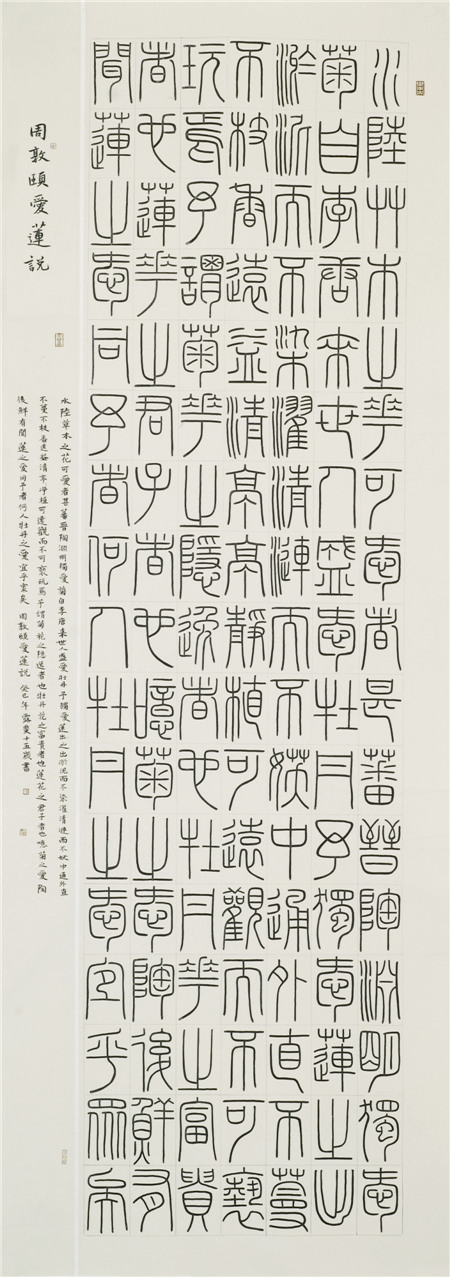 水陸艸木之華可愛者甚蕃晉陶淵明獨愛
菊自李唐來世人盛愛牡丹予獨愛蓮之出
淤泥而不染濯清漣而不妖中通外直不蔓
不枝香遠益清亭亭靜植可遠觀而不可褻
玩焉予謂菊華之隱逸者也牡丹華之富貴
者也蓮華之君子者也噫菊之愛陶後鮮有
聞蓮之愛同予者何人牡丹之愛宜乎眾矣
水陸草木之花可愛者甚蕃晉陶淵明獨愛菊自李唐來世人盛愛牡丹予獨愛蓮出之出淤泥而不染濯清漣而不妖中通外直
不蔓不枝香遠益清亭淨植可遠觀而不可褻玩焉予謂菊花之隱逸者也牡丹花之富貴者也蓮花之君子者也噫菊之愛陶
後鮮有聞蓮之愛同予者何人牡丹之愛宜乎眾矣 周敦頤愛蓮說 癸巳年 露斐十五歲書
周敦頤愛蓮說